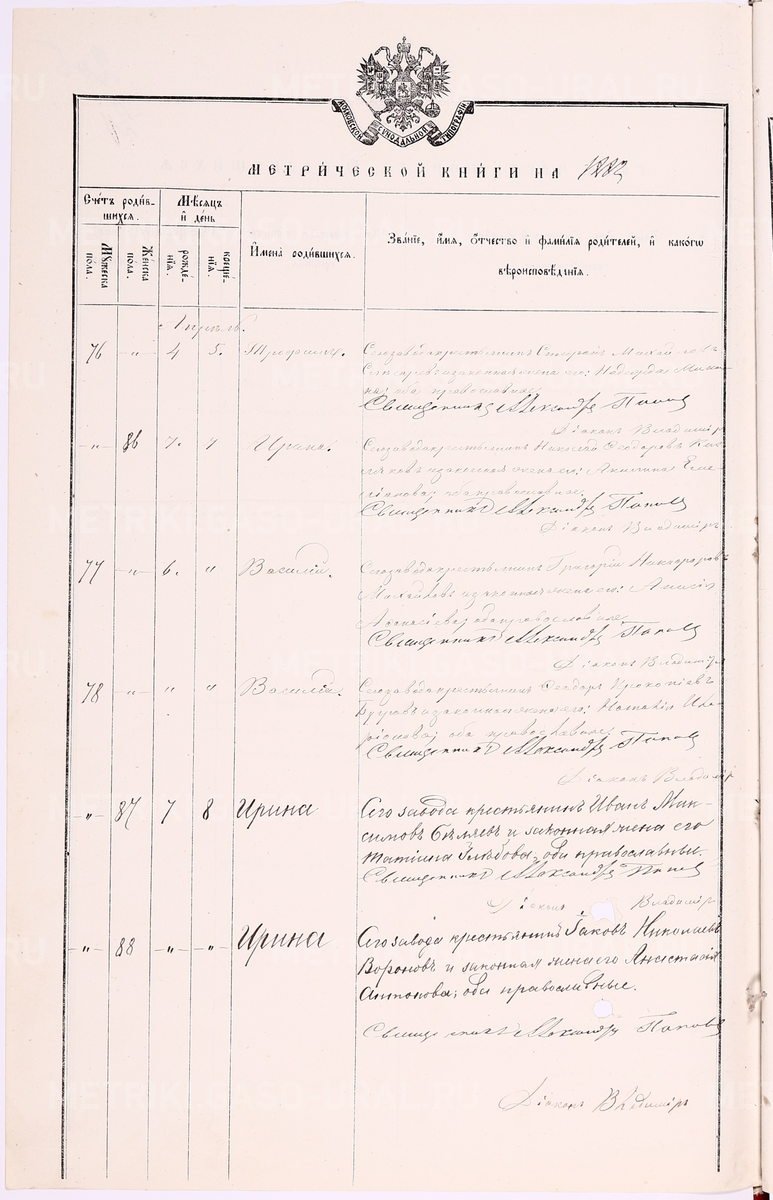 МОСКОВСКОЙ СУНОДАЛЬНОЙ ТИПОГРАФІИ
МЕТРИ́ЧЕСКОЙ КНИ́ГИ НА 1882
Сче́тъ роди́в-
шихся.
Мѣ́сяцъ
и҆ де́нь
И҆мена̀ роди́вшихся.
Зва́ніе, и҆́мя, ѻ҆́тчество и҆ фами́лія роди́телей, и҆ како́гѡ
вѣроисповѣ́данія.
Мꙋ́жеска
по́ла.
Же́нска
по́ла.
рожде́-
нія.
креще́-
нія.
Апрѣль.
76 " 4 5. Трофимъ. Сего завода крестьянинъ Стефанъ Михайловъ
и законная жена его: Надежда
оба православные.
Священникъ Александръ Поповъ
Діаконъ Владиміръ
" 86 7. " Ирина. Сего завода крестьянинъ Николай Ѳеодоровъ
и законная жена его: Акилина Еме-
ліанова; оба православные.
Священникъ Александръ Поповъ
Діаконъ Владиміръ
77 " 6. " Василій. Сего завода крестьянинъ Григорій Никифоровъ
и законная жена его: Анисія
Аѳанасіева; оба православные.
Священникъ Александръ Поповъ
Діаконъ Владиміръ
78 " " " Василій. Сего завода крестьянинъ Ѳеодоръ Прокопіевъ
и законная жена его: Наталія
оба православные.
Священникъ Александръ Поповъ
Діаконъ Владиміръ
" 87 7 8 Ирина Сего завода крестьянинъ Иванъ Мак-
симовъ Бѣляевъ и законная жена его
Татіана Глѣбова; оба православные.
Священникъ Александръ Поповъ
Діаконъ Владиміръ
" 88 " " Ирина Сего завода крестьянинъ Іаковъ Николаевъ
Вороновъ и законная жена его Анастасія
Антонова; оба православные.
Священникъ Александръ Поповъ
Діаконъ Владиміръ